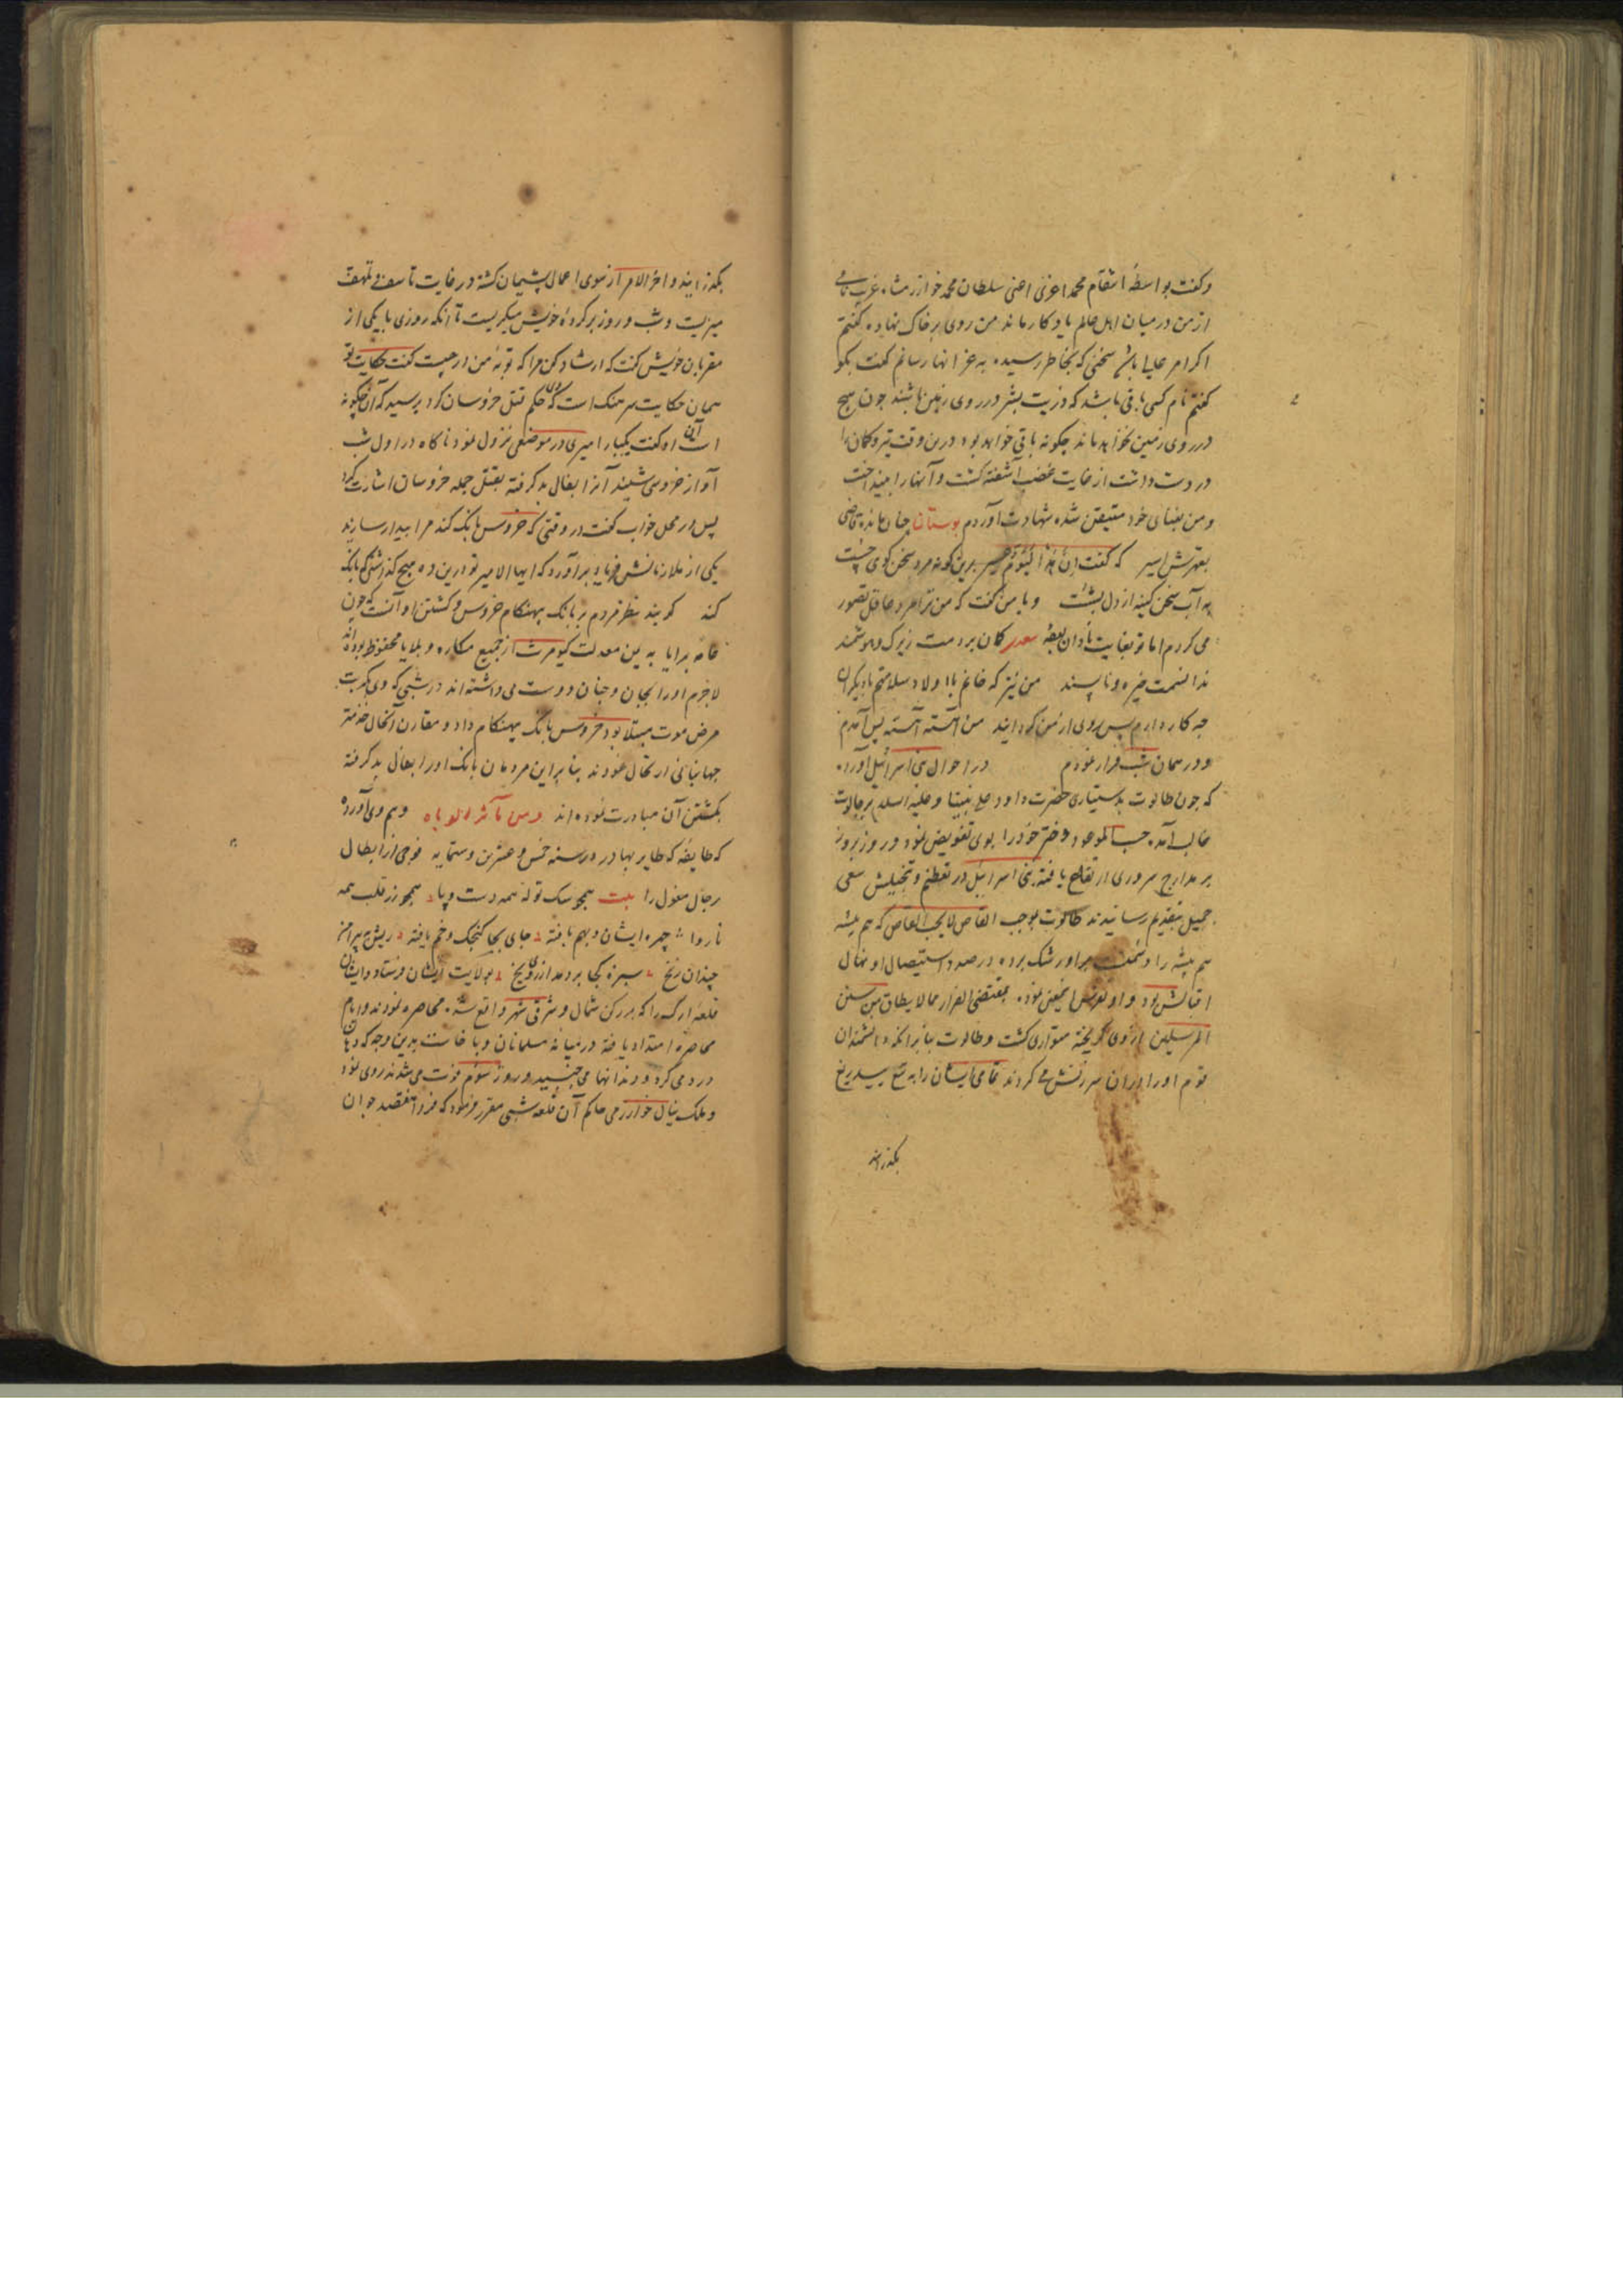 وکفت بواسطهٔ انتقام محمد اغری اعنی سلطان محمد خوارزمشاه غریب نامی
از من درمیان اهل عالم یادکار ماند من روی برخاک نهاده کفتم
اکر امر عالی باشد سخنی که بخاطر رسیده به عز انها رسانم کفت بکو
کفتم نام کسی باقی باشد که ذریت بشر در روی زمین باشند چون هیچ
در روی زمین نخواهد ماند چکونه باقی خواهد بود درین وقت تیر وکمان را
در دست داشت از غایت غضب آشفته کشت و آنها را بینداخت
و من بفنای خود متیقن شده شهادت آوردم بوستان چنان ماند قاضی
بقهرش اسیر که کفت ان هذا لیوم عسیر برین کونه مرد سخن کوی چست
به آب سخن کینه از دل بشست وبا من کفت که من ترا مرد عاقل تصور
می کردم اما تو بغایت نادان کمان بردمت زیرک وهوشمند
ندانستمت خیره وناپسند من نیز که خانم با اولاد سلاطین دیکران
چه کار دارم پس روی از من کردانید من آهسته آهسته پس آمدم
ودر همان شب فرار نمودم در احوال بنی اسرائیل آورده
که چون طالوت بدستیاری حضرت داود علی نبینا وعلیه السلام بر جالوت
غالب آمد حسب الموعود دختر خود را بوی تفویض نمود و روز بروز
بر مدارج سروری ارتقاع یافته بنی اسرائیل در تعظیم وتبجیلش سعی
جمیل بتقدیم رسانیدند طالوت بموجب القاص لا یحب القاص که هم پیشه
هم پیشه را دشمنست بر او رشک برده در صدد استیصال او نهال
اقبالش بود و او بمقتضی الفرار مما لا یطاق من سنن
المرسلین از وی کریخته متواری کشت وطالوت بنا بر انکه دانشمندان
قوم او را بران سرزنش می کردند تمامی ایشان را به تیغ بیدریغ
بکذرانید
بکذرانید واخر الامر از سوی اعمال پشیمان کشته در غایت تاسف وتلهف
میزیست وشب و روز بر کردهٔ خویش میکریست تا آنکه روزی با یکی از
مقربان خویش کفت که ارشاد کن مرا که توبهٔ من در چیست کفت حکایت تو
همان حکایت سرهنک است که حکم قتل خروسان کرد پرسید که آن چکونه
است او کفت یکبار امیری در موضعی نزول نمود ناکاه در اول شب
آواز خروسی شنید آنرا بفال بد کرفته بقتل جمله خروسان اشارت کرد
پس در محل خواب کفت در وقتی که خروس بانک کند مرا بیدار سازند
یکی از ملازمانش فریاد برآورد که ایها الامیر تو درین ده هیچ خروسی کذاشتی که بانک
کند کویند تنفر مردم بر بانک بیهنکام خروس وکشتن او آنست که چون
عامه برایا به یمن معدلت کیومرث از جمیع مکاره وبلایا محفوظ بوده اند
لاجرم او را بجان وجنان دوست می داشته اند در شبی که وی بکربت
مرض موت مبتلا بود خروس بانک بیهنکام داد ومقارن آنحال حضرت
جهانبانی ارتحال نمودند بنا براین مردمان بانک او را بفال بد کرفته
بکشتن آن مبادرت نموده اند وهم وی آورده
که طایفه که طایر بهادر در سنه خمس وعشرین وستمایه فوجی از ابطال
رجال مغول را بیت همچو سک توله همه دست وپا همچو زر قلب همه
ناروا چهره ایشان بهم بافته جای بجا کنجک وخم یافته ریش نه پیرامن
چندان زنخ سبزه کجا بر دمد از روی یخ بولایت ایشان فرستاد وایشان
قلعهٔ ارک را که بر رکن شمال وشرقی شهر واقع شده محاصره نمودند وایام
محاصره امتداد یافته درمیانه مسلمانان وبا خاست بدین وجه که دهان
درد می کرد ودندانها می جنبید و روز سوم فوت می شدند روی نمود
وملک ینال خوارزمی حاکم آن قلعه شبی مقرر فرمود که فردا هفتصد جوان